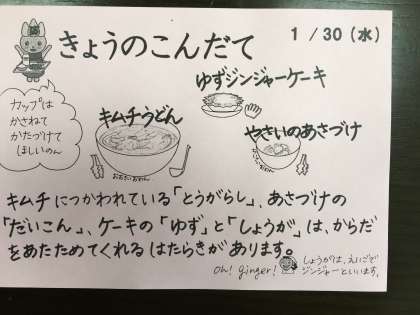 きょうのこんだて
1/30(水)
カップは
かさねて
かたづけて
ほしいのん
キムチうどん
おおきいおわん
ゆずジンジャーケーキ
やさいのあさづけ
ちいさいおわん
キムチにつかわれている「とうがらし」、あさづけの
「だいこん」、ケーキの「ゆず」と「しょうが」は、からだ
をあたためてくれるはたらきがあります。
oh! ginger!
しょうがは、えいごで
ジンジャーといいます。